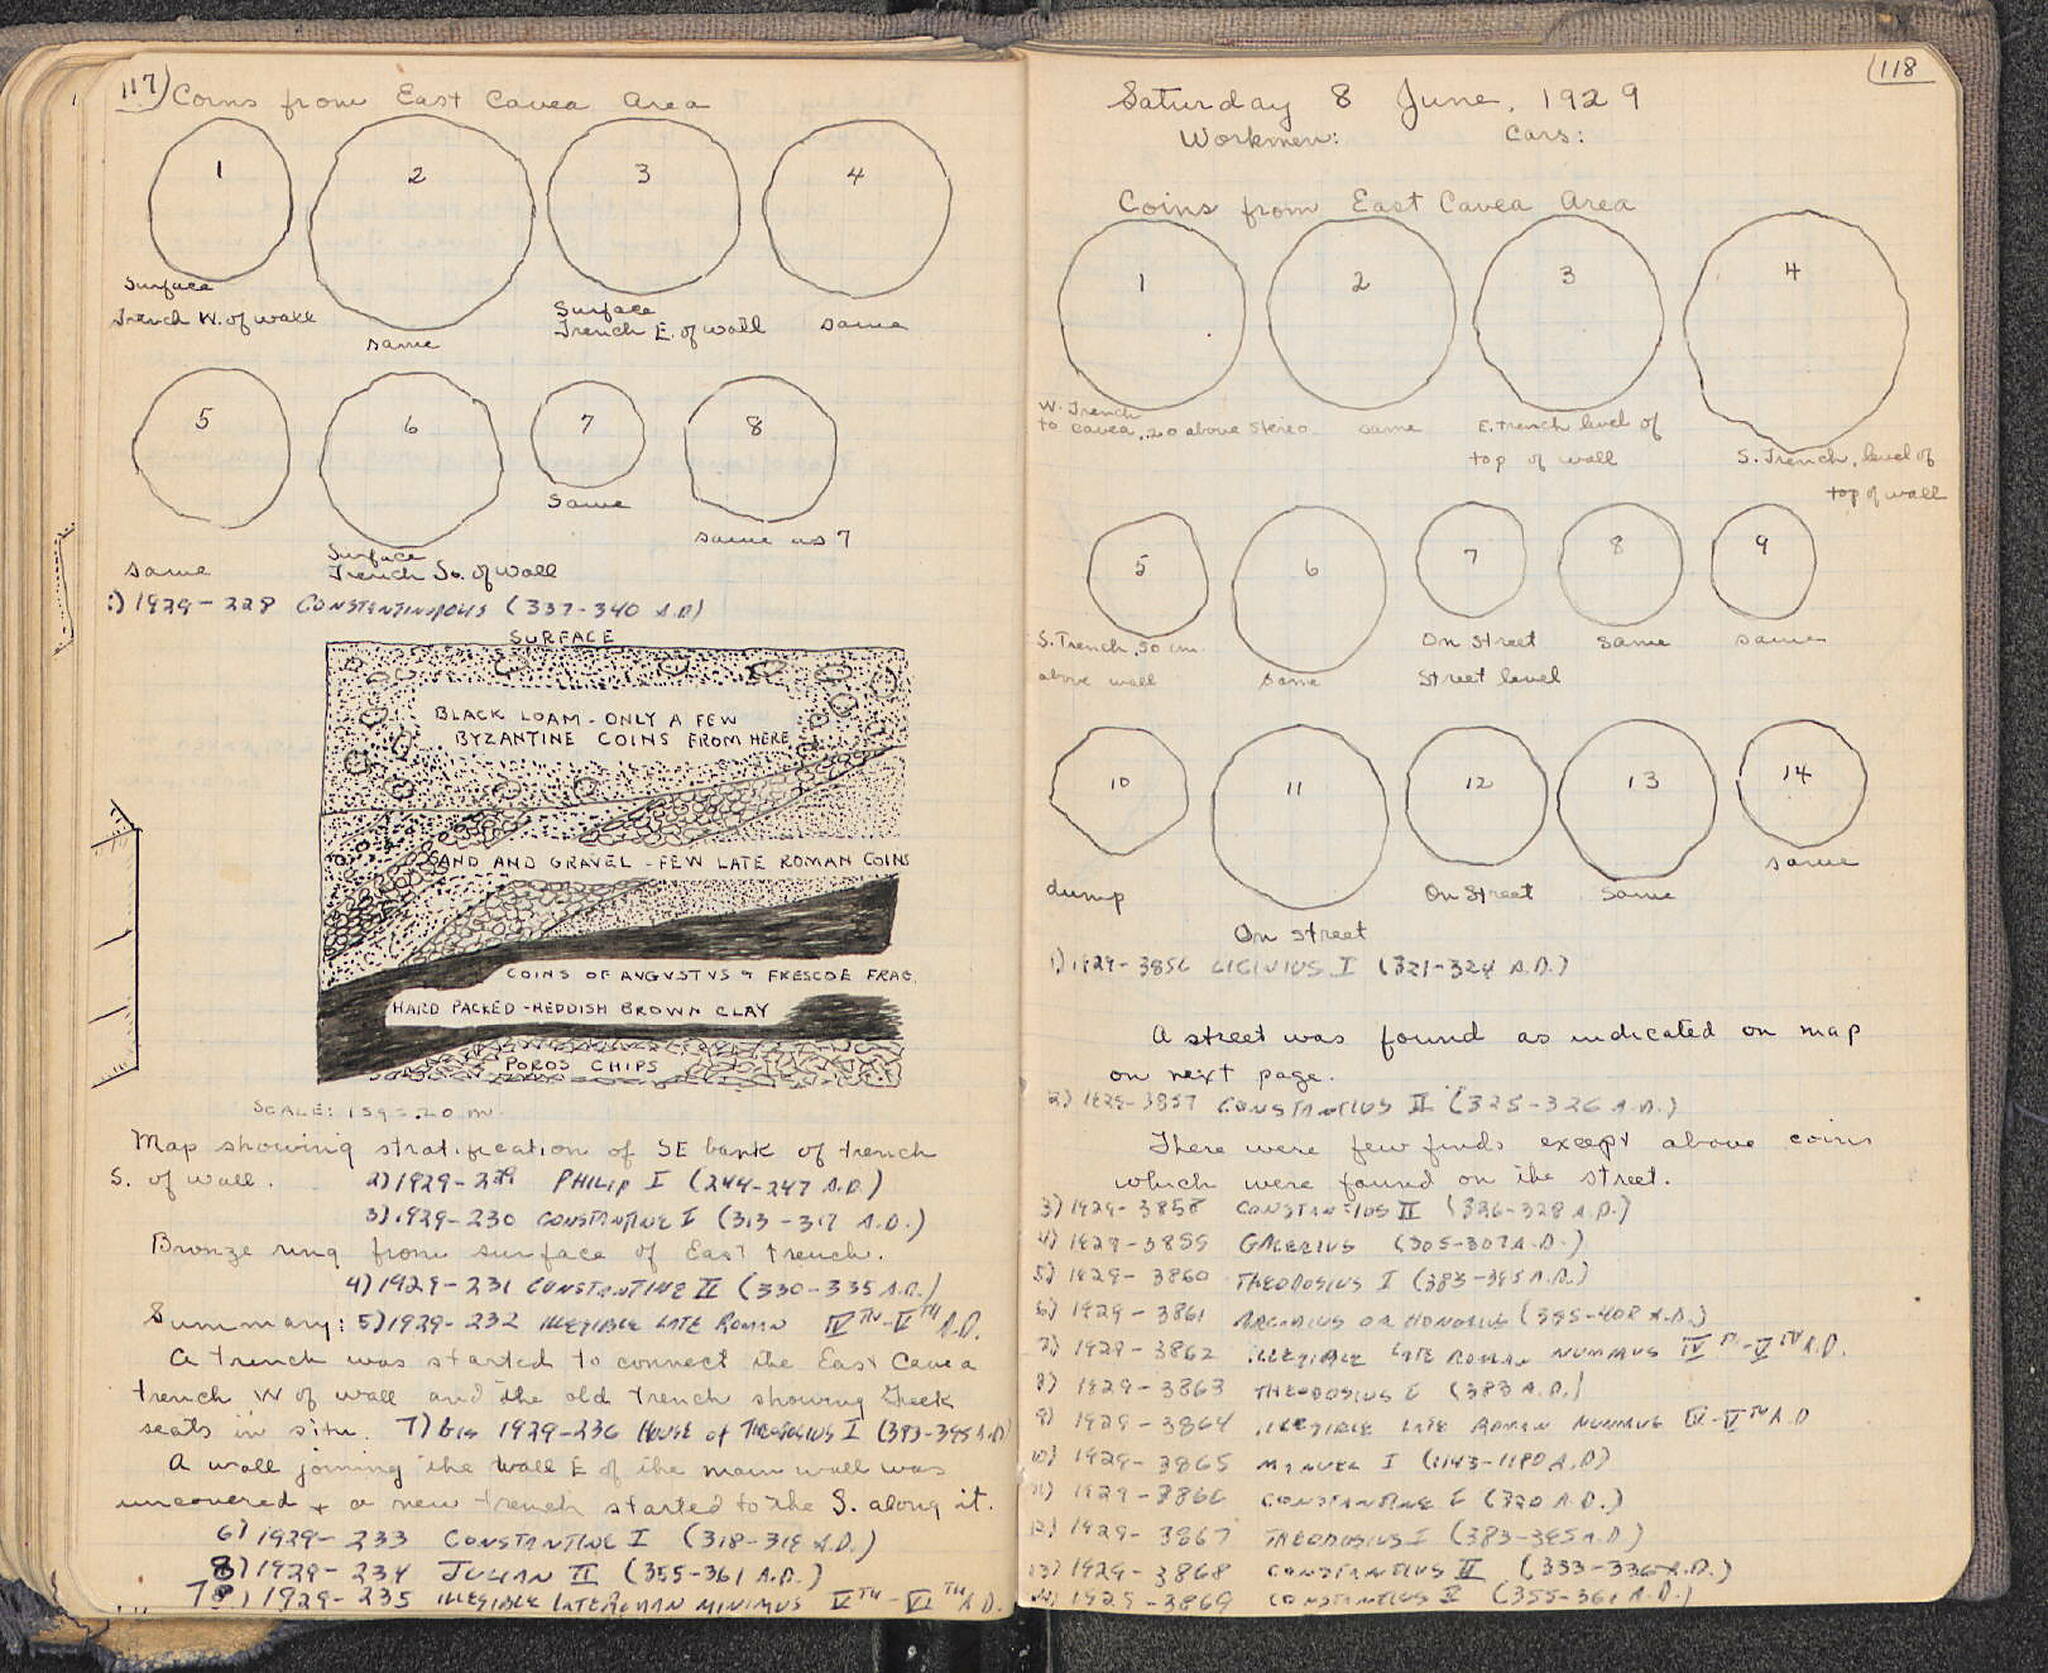 117) Coins from East Cavea Area
1
2
3
4
Surface
Trench W. of wall
same
Surface
Trench E. of wall
same
5
6
7
8
same
Surface
Trench So. of wall
same
same as 7
1) 1929-228 CONSTANTINOPOLIS (337-340 A.D)
SURFACE
BLACK LOAM - ONLY A FEW
BYZANTINE COINS FROM HERE
SAND AND GRAVEL - FEW LATE ROMAN COINS
COINS OF AVGVSTVS & FRESCOE FRAG.
HARD PACKED - REDDISH BROWN CLAY
POROS CHIPS
SCALE: 1 sq = .20 m.
Map showing stratification of SE bank of trench
S. of wall.
2) 1929-229 PHILIP I (244-247 A.D.)
3) 1929-230 CONSTANTINE I (313-317 A.D.)
Bronze ring from surface of East trench.
4) 1929-231 CONSTANTINE II (330-335 A.D.)
Summary: 5) 1929-232 ILLEGIBLE LATE ROMAN IVTH-VTH A.D.
A trench was started to connect the East Cavea
trench W of wall and the old trench showing Greek
seats in situ. 7) bis 1929-236 HOUSE of THEODOSIUS I (383-395 A.D)
A wall joining the wall E of the main wall was
uncovered + a new trench started to the S. along it.
6) 1929-233 CONSTANTINE I (318-319 A.D.)
8) 1929-234 JULIAN II (355-361 A.D.)
7) 1929-235 ILLEGIBLE LATE ROMAN MINIMUS VTH-VITH A.D.
118
Saturday 8 June, 1929
Workmen: Cars:
Coins from East Cavea Area
1
2
3
4
W. Trench
to cavea, .20 above stereo
same
E. trench level of
top of wall
S. Trench, level of
top of wall
5
6
7
8
9
S. Trench, 50 cm.
above wall
same
On Street
Street level
same
same
10
11
12
13
14
dump
On street
On Street
Same
same
1) 1929-3856 LICINIUS I (321-324 A.D.)
A street was found as indicated on map
on next page.
2) 1929-3857 CONSTANTIUS II (325-326 A.D.)
There were few finds except above coins
which were found on the street.
3) 1929-3858 CONSTANTIUS II (326-328 A.D.)
4) 1929-3859 GALERIUS (305-307 A.D.)
5) 1929-3860 THEODOSIUS I (383-395 A.D.)
6) 1929-3861 ARCADIUS OR HONORIUS (395-408 A.D.)
7) 1929-3862 ILLEGIBLE LATE ROMAN NUMMUS IVTH-VTH A.D.
8) 1929-3863 THEODOSIUS I (383 A.D.)
9) 1929-3864 ILLEGIBLE LATE ROMAN NUMMUS IV-VTH A.D
10) 1929-3865 MANUEL I (1143-1180 A.D)
11) 1929-3866 CONSTANTINE I (320 A.D.)
12) 1929-3867 THEODOSIUS I (383-395 A.D)
13) 1929-3868 CONSTANTIUS II (333-336 A.D.)
14) 1929-3869 CONSTANTIUS II (355-361 A.D.)